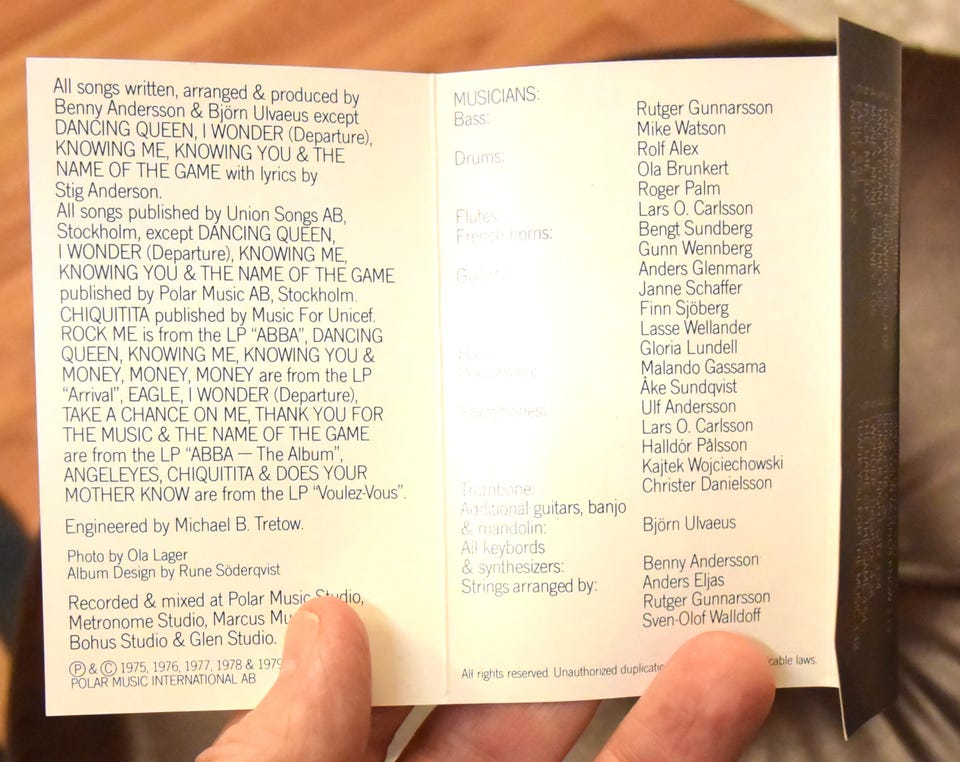 All songs written, arranged & produced by
Benny Andersson & Björn Ulvaeus except
DANCING QUEEN, I WONDER (Departure),
KNOWING ME, KNOWING YOU & THE
NAME OF THE GAME with lyrics by
Stig Anderson.
All songs published by Union Songs AB,
Stockholm, except DANCING QUEEN,
I WONDER (Departure), KNOWING ME,
KNOWING YOU & THE NAME OF THE GAME
published by Polar Music AB, Stockholm.
CHIQUITITA published by Music For Unicef.
ROCK ME is from the LP "ABBA", DANCING
QUEEN, KNOWING ME, KNOWING YOU &
MONEY, MONEY, MONEY are from the LP
"Arrival", EAGLE, I WONDER (Departure),
TAKE A CHANCE ON ME, THANK YOU FOR
THE MUSIC & THE NAME OF THE GAME
are from the LP "ABBA — The Album",
ANGELEYES, CHIQUITITA & DOES YOUR
MOTHER KNOW are from the LP "Voulez-Vous".
Engineered by Michael B. Tretow.
Photo by Ola Lager
Album Design by Rune Söderqvist
Recorded & mixed at Polar Music Studio,
Metronome Studio, Marcus
Bohus Studio & Glen Studio.
Ⓟ & © 1975, 1976, 1977, 1978 & 1979
POLAR MUSIC INTERNATIONAL AB
MUSICIANS:
Bass: Rutger Gunnarsson
Mike Watson
Drums: Rolf Alex
Ola Brunkert
Roger Palm
Flutes: Lars O. Carlsson
French horns: Bengt Sundberg
Gunn Wennberg
Guitars: Anders Glenmark
Janne Schaffer
Finn Sjöberg
Lasse Wellander
Gloria Lundell
Malando Gassama
Åke Sundqvist
Saxophones: Ulf Andersson
Lars O. Carlsson
Halldór Pålsson
Kajtek Wojciechowski
Trombone: Christer Danielsson
Additional guitars, banjo
& mandolin: Björn Ulvaeus
All keybords
& synthesizers: Benny Andersson
Strings arranged by: Anders Eljas
Rutger Gunnarsson
Sven-Olof Walldoff
All rights reserved. Unauthorized cable laws.